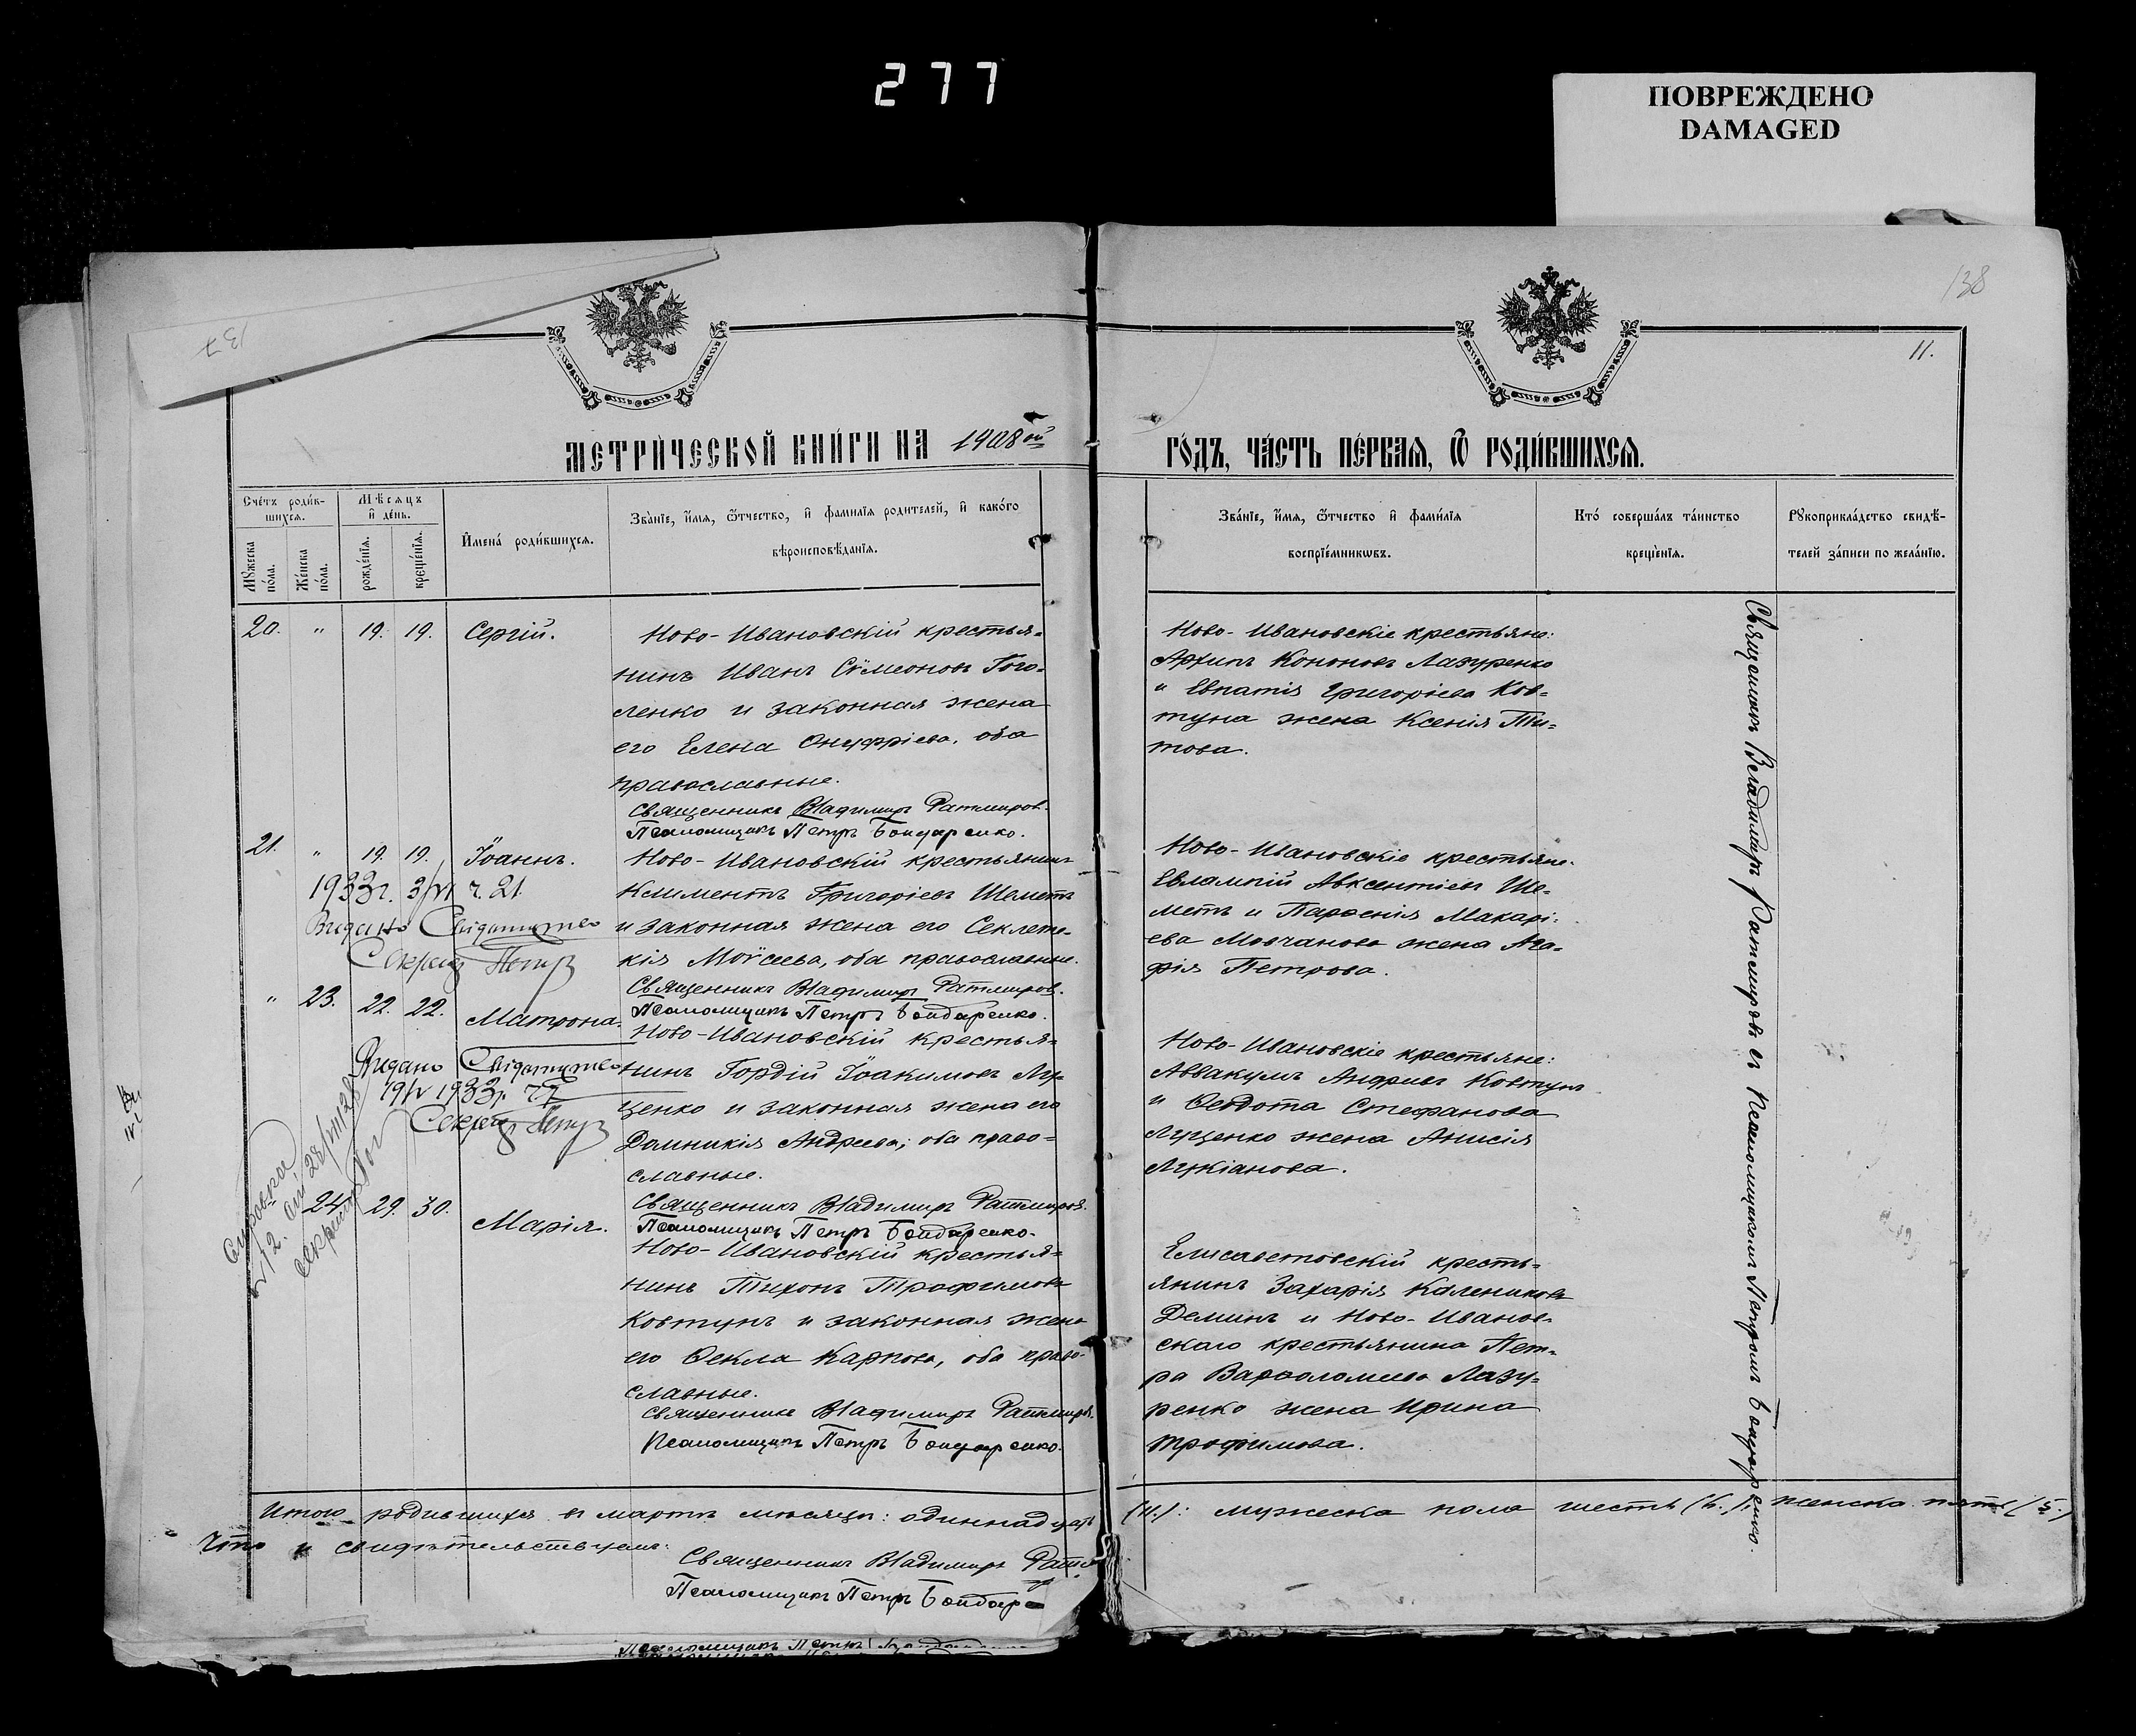 277
ПОВРЕЖДЕНО
DAMAGED
137
138
11.
МЕТРИ́ЧЕСКОЙ КНИ́ГИ НА 1908ой
ГО́ДЪ, ЧА́СТЬ ПЕ́РВАЯ, Ѿ РОДИ́ВШИХСЯ.
Сче́тъ роди́в-
шихся.
Мѣсяцъ
и де́нь.
Му́жеска
по́ла.
Же́нска
по́ла.
рожде́нія.
креще́нія.
Имена́ роди́вшихся.
Зва́нїе, и́мя, ѻ́тчество, и фамилїя родителей, и како́го
вѣроисповѣ́данїя.
Зва́нїе, и́мя, ѻ́тчество и фами́лїя
воспрїе́мникωвъ.
Кто́ соверша́лъ та́инство
креще́нїя.
Рукоприкла́дство свидѣ́-
телей за́писи по жела́нїю.
20. " 19. 19. Сергій.
Ново-Ивановскій крестья-
нинъ Иванъ Сѵмеоновъ Гого-
ленко и законная жена
его Елена Онуфріева, оба
православные.
Священникъ Владимиръ Ратмиров.
Псаломщикъ Петръ Бондаренко.
Ново-Ивановскіе крестьяне:
Архипъ Кононовъ Лазуренко
и Евпатія Григоріева Ков-
туна жена Ксенія Ти-
това.
21. " 19. 19. Іоаннъ.
1933г. 3/VI ч. 21.
Видано Свідоцтво
Секрет
Ново-Ивановскій крестьянинъ
Климентъ Григоріевъ Шеметъ
и законная жена его Секлети-
кія Моѵсеева, оба православные.
Священникъ Владимиръ Ратмиров.
Псаломщикъ Петръ Бондаренко.
Ново-Ивановскіе крестьяне:
Евлампій Авксентіевъ Ше-
метъ и Парѳенія Макарі-
ева Мовчанова жена Ага-
фія Петрова.
" 23. 22. 22. Матрона.
Видано Свідоцтво
19/V 1933р. ч7
Секрет
Ново-Ивановскій крестья-
нинъ Гордій Іоакимовъ Лу-
ценко и законная жена его
Домникія Андреева, оба право-
славные.
Священникъ Владимиръ Ратмиров.
Псаломщикъ Петръ Бондаренко.
Ново-Ивановскіе крестьяне:
Аввакумъ Андреевъ Ковтунъ
и Ѳеодота Стефанова
Луценко жена Анисія
Лукіанова.
24. 29. 30. Марія.
Ново-Ивановскій крестья-
нинъ Тихонъ Трофимовъ
Ковтунъ и законная жена
его Ѳекла Карпова, оба право-
славные.
Священникъ Владимиръ Ратмиров.
Псаломщикъ Петръ Бондаренко.
Елисаветовскій кресть-
янинъ Захарія Калениковъ
Деминъ и Ново-Иванов-
скаго крестьянина Пет-
ра Варѳоломеева Лазу-
ренко жена Ирина
Трофимова.
Священникъ Владимиръ Ратмировъ съ псаломщикомъ Петромъ Бондаренко.
Итого родившихся въ мартѣ мѣсяцѣ: одиннадцать (11.): мужеска пола шесть (6.), женска пять (5.)
Что и свидѣтельствуемъ:
Священникъ Владимиръ Ратм
Псаломщикъ Петръ Бондаре